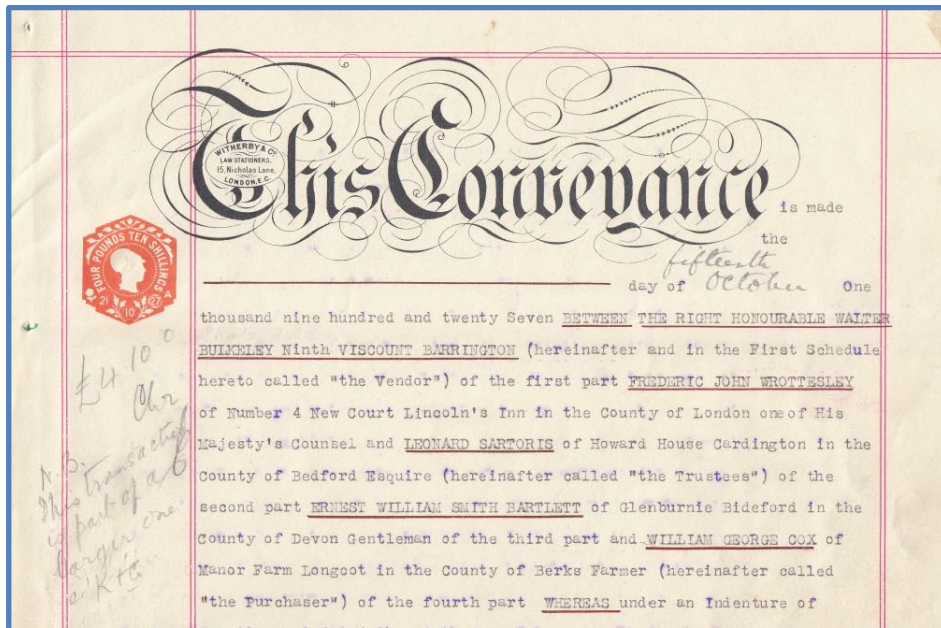 This Conveyance is made
WITHERBY & Co
LAW STATIONERS,
15, Nicholas Lane,
LONDON, E.C.
the
day of fifteenth October One
FOUR POUNDS TEN SHILLINGS
21 10 27
thousand nine hundred and twenty Seven BETWEEN THE RIGHT HONOURABLE WALTER
BULKELEY Ninth VISCOUNT BARRINGTON (hereinafter and in the First Schedule
hereto called "the Vendor") of the first part FREDERIC JOHN WROTTESLEY
of Number 4 New Court Lincoln's Inn in the County of London one of His
Majesty's Counsel and LEONARD SARTORIS of Howard House Cardington in the
County of Bedford Esquire (hereinafter called "the Trustees") of the
second part ERNEST WILLIAM SMITH BARTLETT of Glenburnie Bideford in the
County of Devon Gentleman of the third part and WILLIAM GEORGE COX of
Manor Farm Longcot in the County of Berks Farmer (hereinafter called
"the Purchaser") of the fourth part WHEREAS under an Indenture of
£4.10.0
N.B.
This transaction
is part of a
larger one